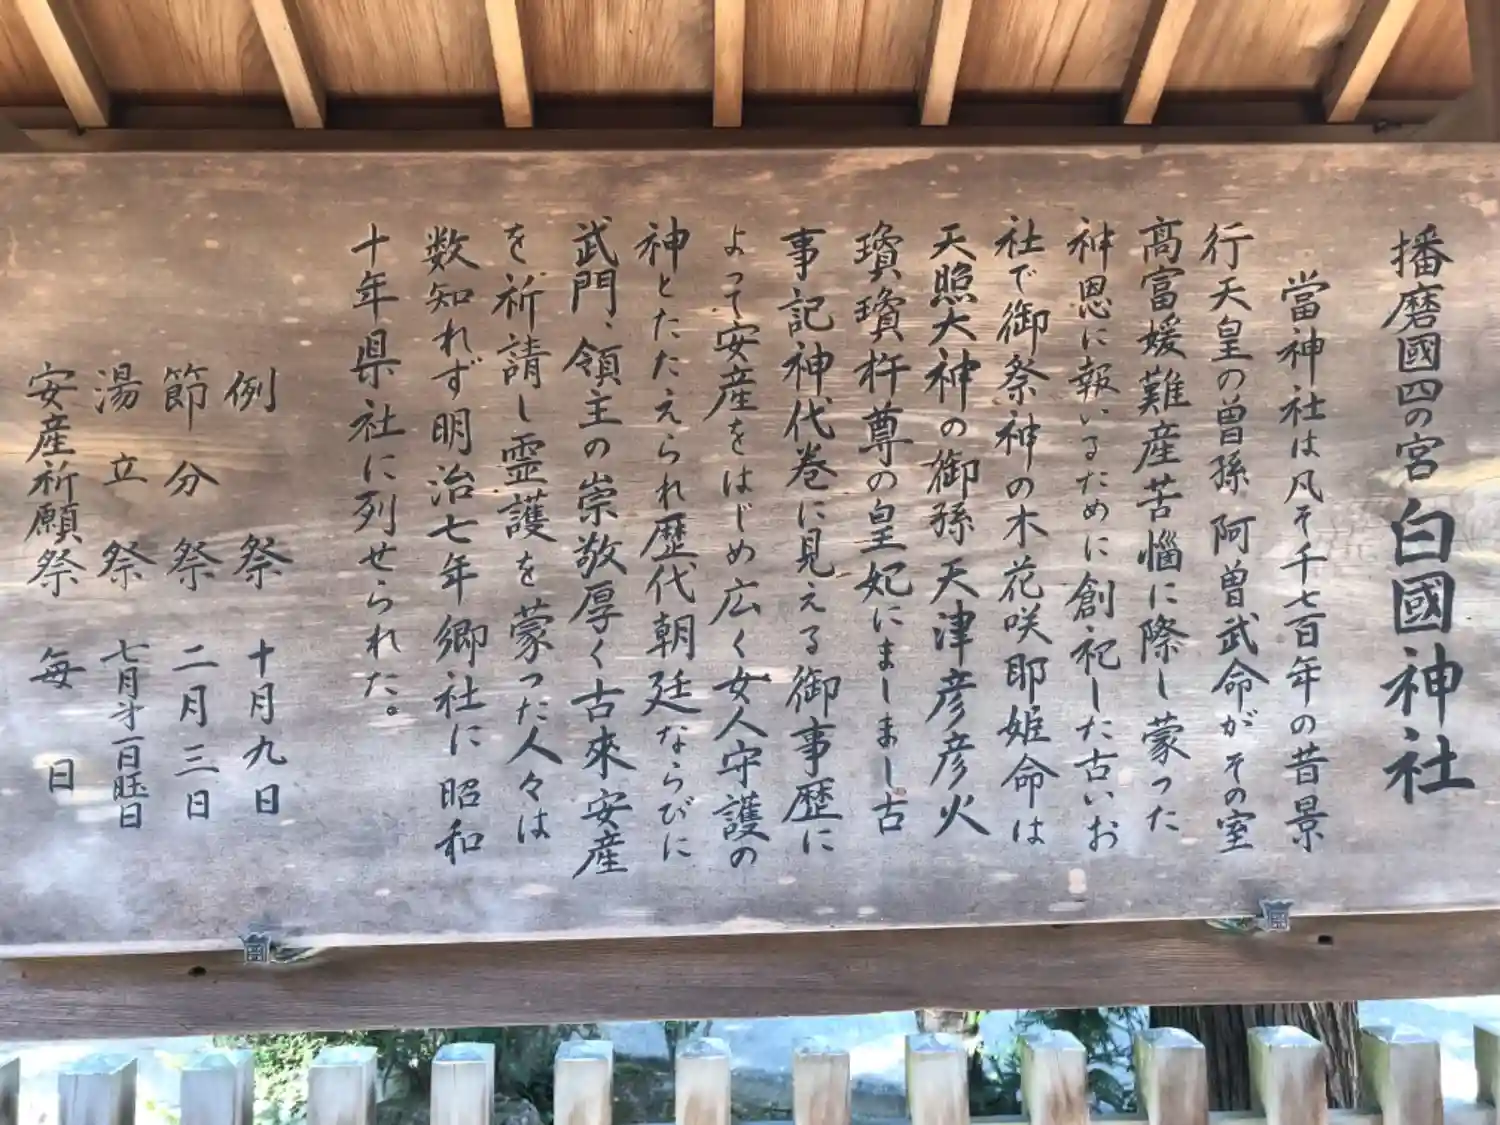 播磨國四の宮 白國神社
當神社は凡そ千七百年の昔景
行天皇の曽孫 阿曽武命がその室
高富媛難産苦惱に際し蒙った
神恩に報いるために創祀した古いお
社で御祭神の木花咲耶姫命は
天照大神の御孫 天津彦彦火
瓊瓊杵尊の皇妃にましまし古
事記神代巻に見える御事歴に
よって安産をはじめ広く女人守護の
神とたたえられ歴代朝廷ならびに
武門、領主の崇敬厚く古來安産
を祈請し霊護を蒙った人々は
数知れず明治七年郷社に昭和
十年県社に列せられた。
例祭 十月九日
節分祭 二月三日
湯立祭 七月第一日曜日
安産祈願祭 毎日